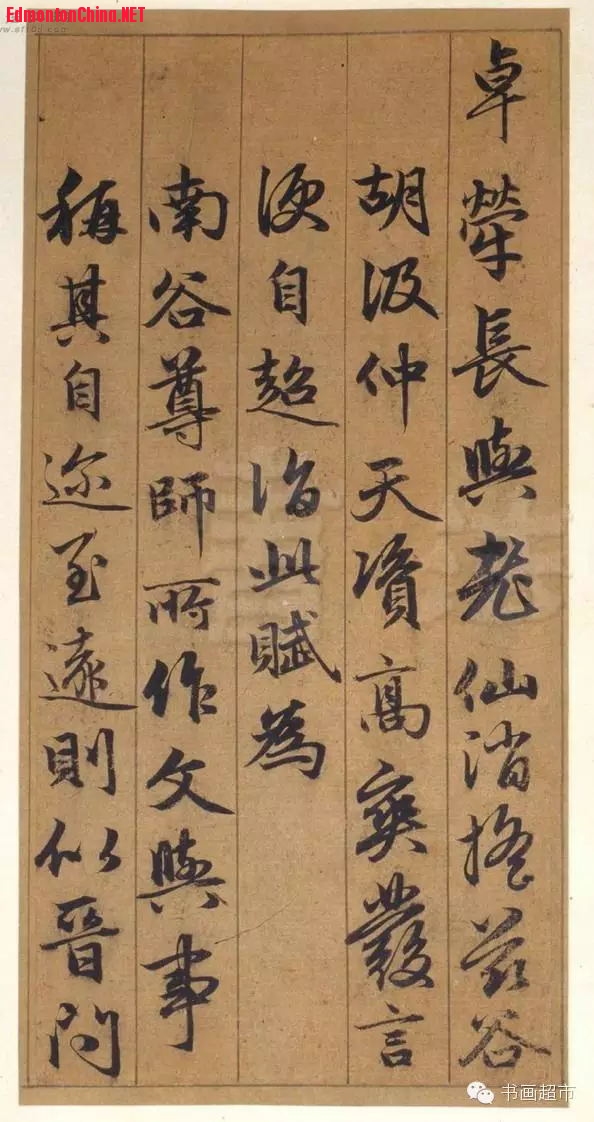 EdmontonChina.NET
卓犖長與老仙消搖兹谷
胡汲仲天資高爽發言
便自超詣此賦為
南谷尊師所作文與事
稱其自迩至遠則似晉問
书画超市